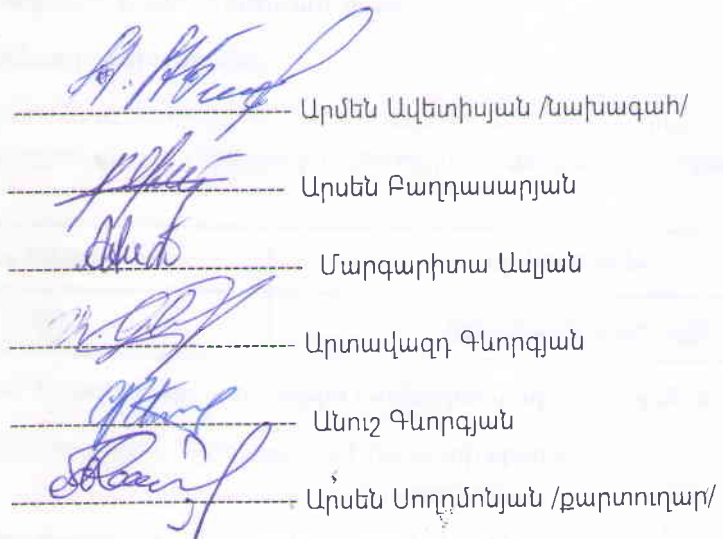 Արմեն Ավետիսյան /նախագահ/
Արսեն Բաղդասարյան
Մարգարիտա Ասլյան
Արտավազդ Գևորգյան
Անուշ Գևորգյան
Արսեն Սողոմոնյան /քարտուղար/